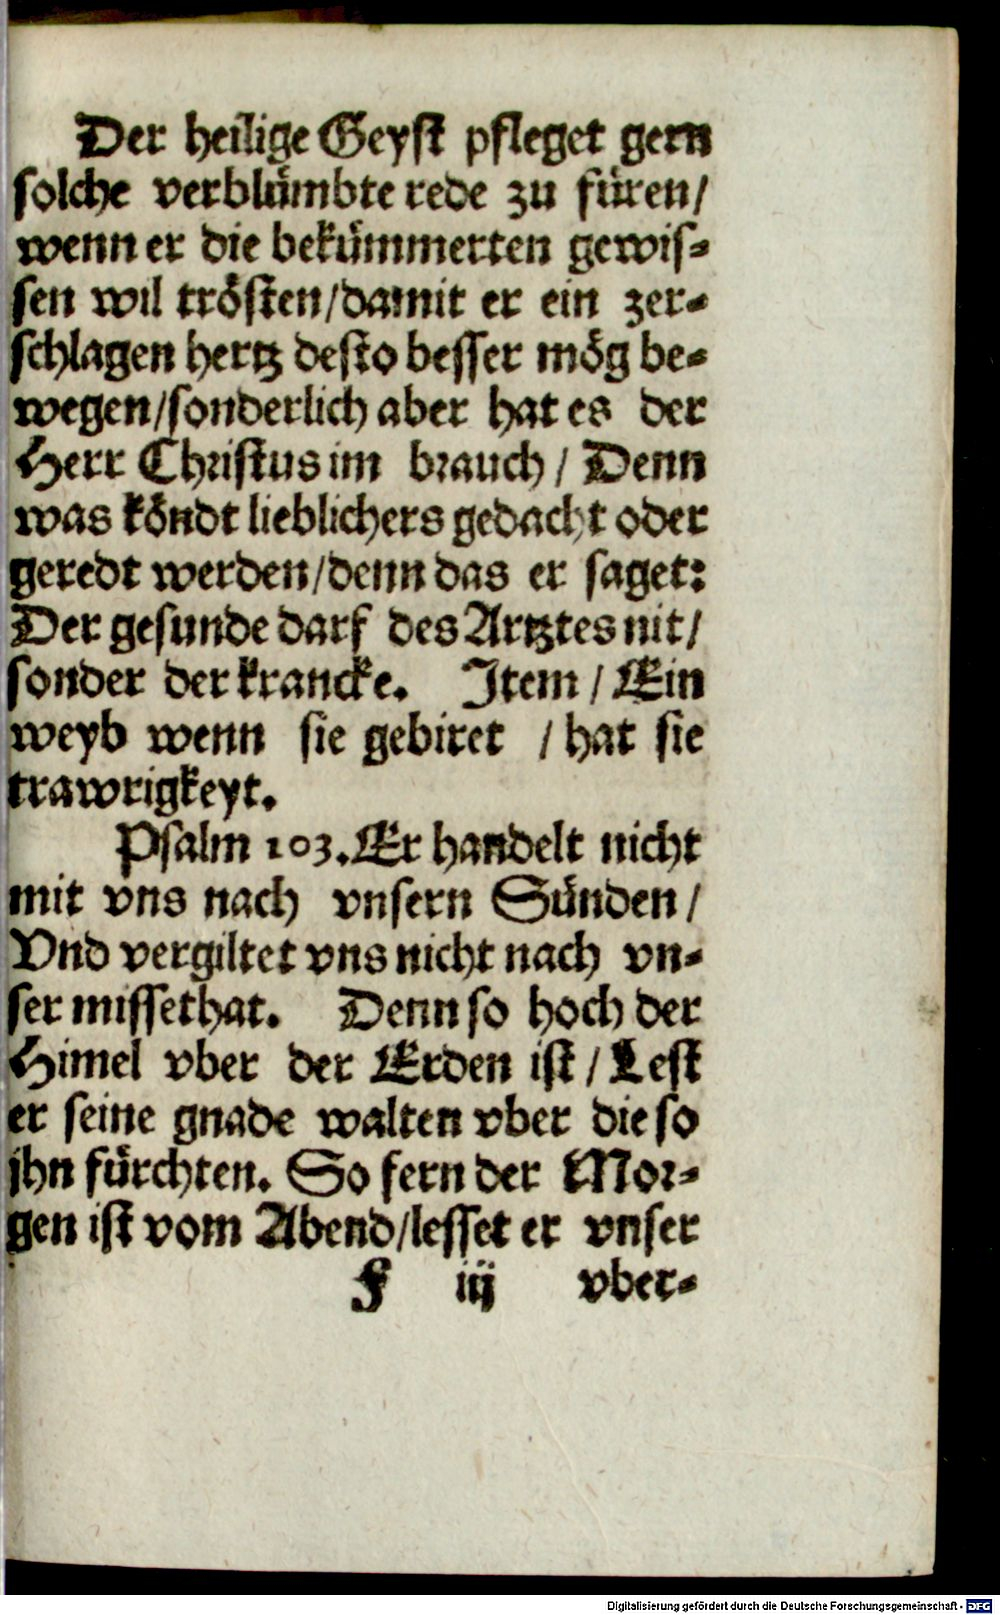 Der heilige Geyst pfleget gern
solche verblümbte rede zu füren/
wenn er die bekümmerten gewis-
sen wil trösten/damit er ein zer-
schlagen hertz desto besser mög be-
wegen/sonderlich aber hat es der
Herr Christus im brauch/ Denn
was köndt lieblichers gedacht oder
geredt werden/denn das er saget:
Der gesunde darf des Artztes nit/
sonder der krancke. Item/ Ein
weyb wenn sie gebiret / hat sie
trawrigkeyt.
Psalm 103. Er handelt nicht
mit vns nach vnsern Sünden/
Vnd vergiltet vns nicht nach vn-
ser missethat. Denn so hoch der
Himel vber der Erden ist/ Lest
er seine gnade walten vber die so
jhn fürchten. So fern der Mor-
gen ist vom Abend/lesset er vnser
F iij vber-
Digitalisierung gefördert durch die Deutsche Forschungsgemeinschaft - DFG